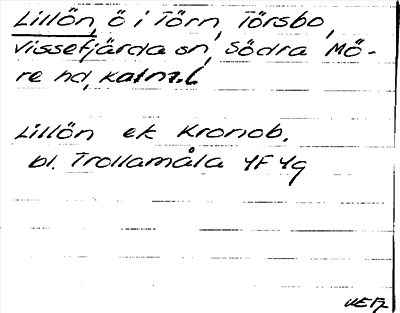 Lillön, ö i Törn, Törsbo,
Vissefjärda sn, Södra Mö-
re hd, Kalm. l.
Lillön ek Kronob.
bl. Trollamåla 4F 4g